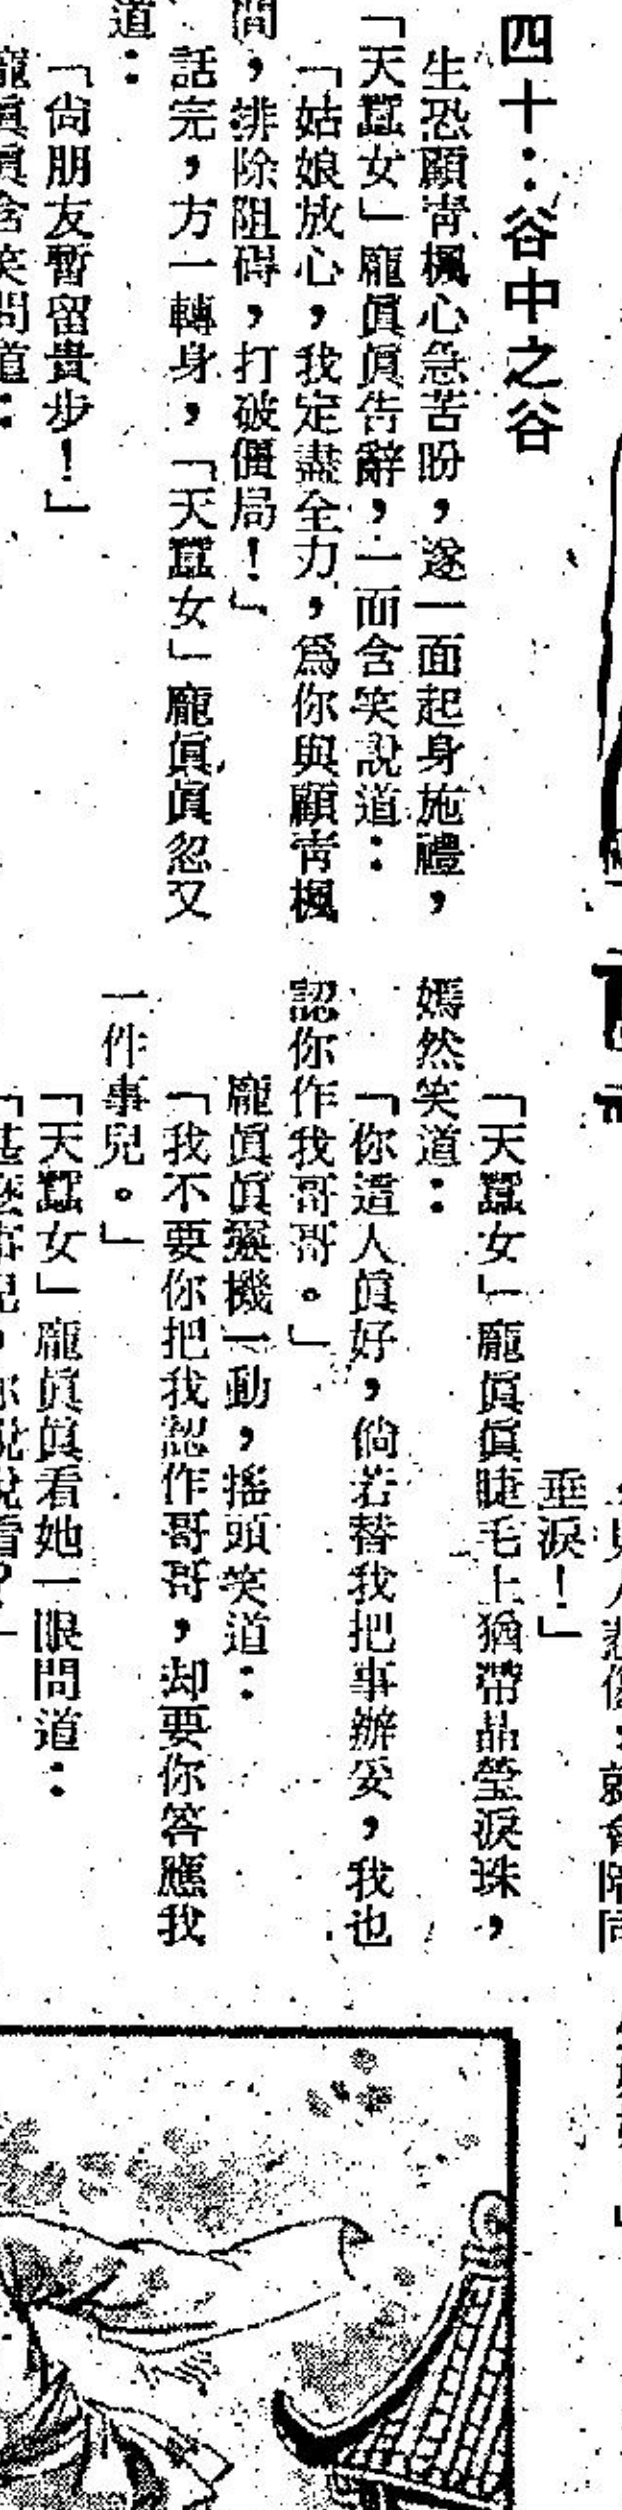 四十：谷中之谷
生恐顧青楓心急苦盼，遂一面起身施禮，
「天蠶女」龐眞眞告辭，一面含笑說道：
「姑娘放心，我定盡全力，爲你與顧青楓
間，排除阻碍，打破僵局！」
話完，方一轉身，「天蠶女」龐眞眞忽又
道：
「尙朋友暫留貴步！」
龐眞眞含笑問道：
垂淚！」
「天蠶女」龐眞眞睫毛上猶帶晶瑩淚珠，
嫣然笑道：
「你這人眞好，倘若替我把事辦妥，我也
認你作我哥哥。」
龐眞眞靈機一動，搖頭笑道：
「我不要你把我認作哥哥，却要你答應我
一件事兒。」
「天蠶女」龐眞眞看她一眼問道：
「甚麼事兒，你說說看？」